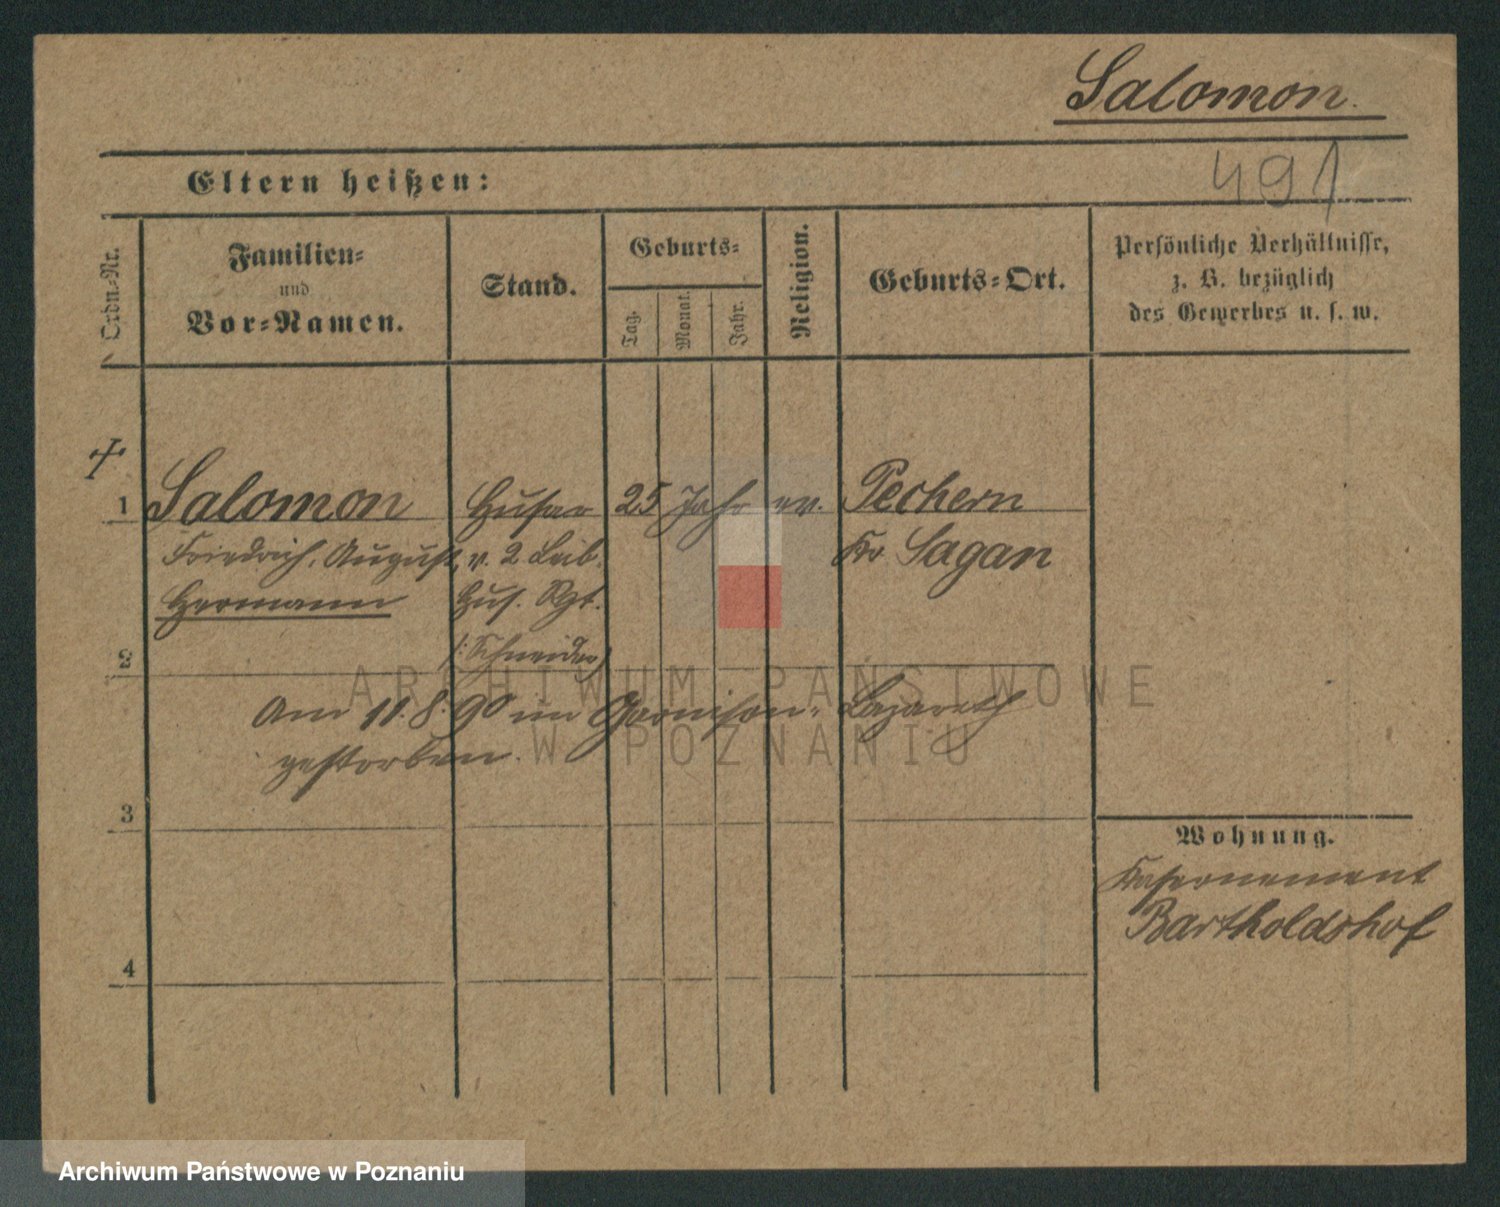 Salomon.
491
Eltern heißen:
Ordn.-Nr.
Familien-
und
Vor-Namen.
Stand.
Geburts-
Tag.
Monat.
Jahr.
Religion.
Geburts-Ort.
Persönliche Verhältnisse,
z. B. bezüglich
des Gewerbes u. s. w.
1 Salomon Husar 25 Jahr ev. Pechern
Friedrich, August, v. 2 Leib. Kr Sagan
Hermann Hus. Rgt.
2 (: Schneider)
Am 11.8.90 im Garnison-Lazareth
gestorben.
3
Wohnung.
Kasernement
Bartholdshof
4
ARCHIWUM PAŃSTWOWE
W POZNANIU
Archiwum Państwowe w Poznaniu